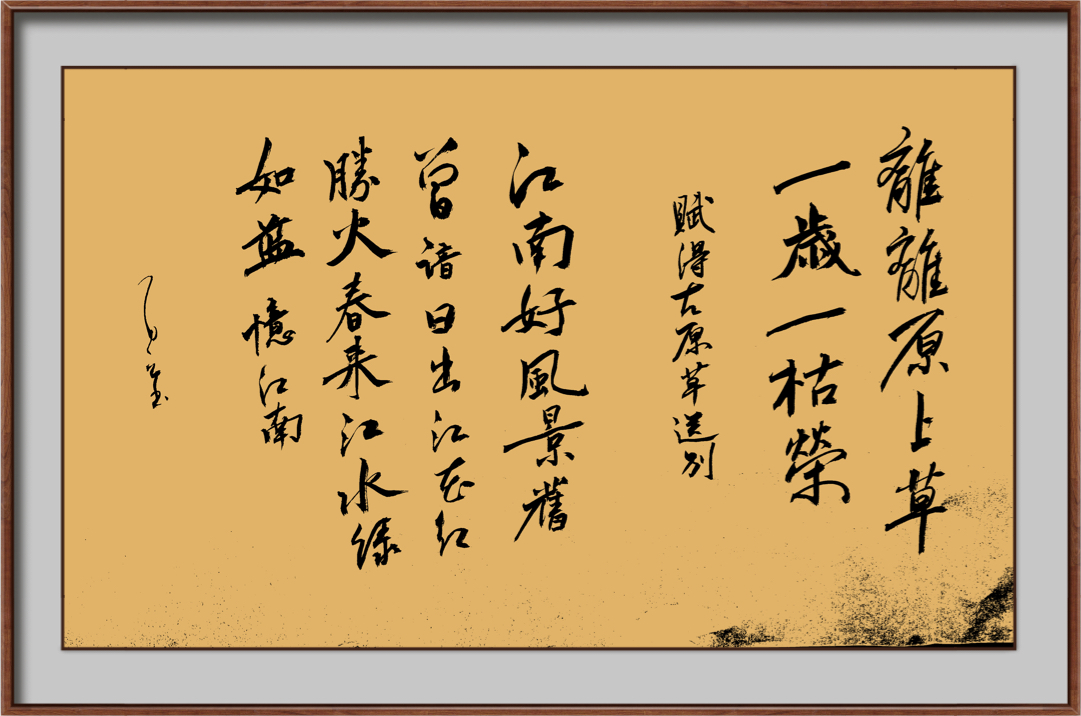 離離原上草
一歲一枯榮
賦得古原草送别
江南好風景舊
曾諳日出江花红
勝火春来江水绿
如蓝 憶江南